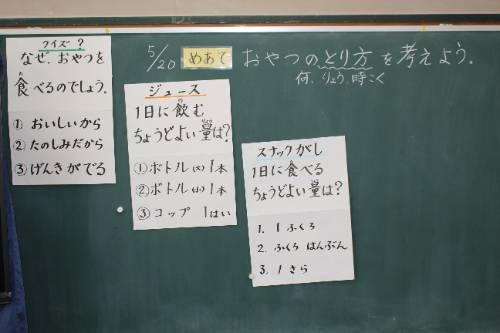 5/20 めあて おやつのとり方を考えよう。
何、りょう、時こく
クイズ?
なぜ、おやつを
食べるのでしょう。
① おいしいから
② たのしみだから
③ げんきがでる
ジュース
1日に飲む
ちょうどよい量は?
① ボトル(大) 1本
② ボトル(小) 1本
③ コップ 1はい
スナックがし
1日に食べる
ちょうどよい量は?
1. 1ふくろ
2. ふくろ はんぶん
3. 1さら